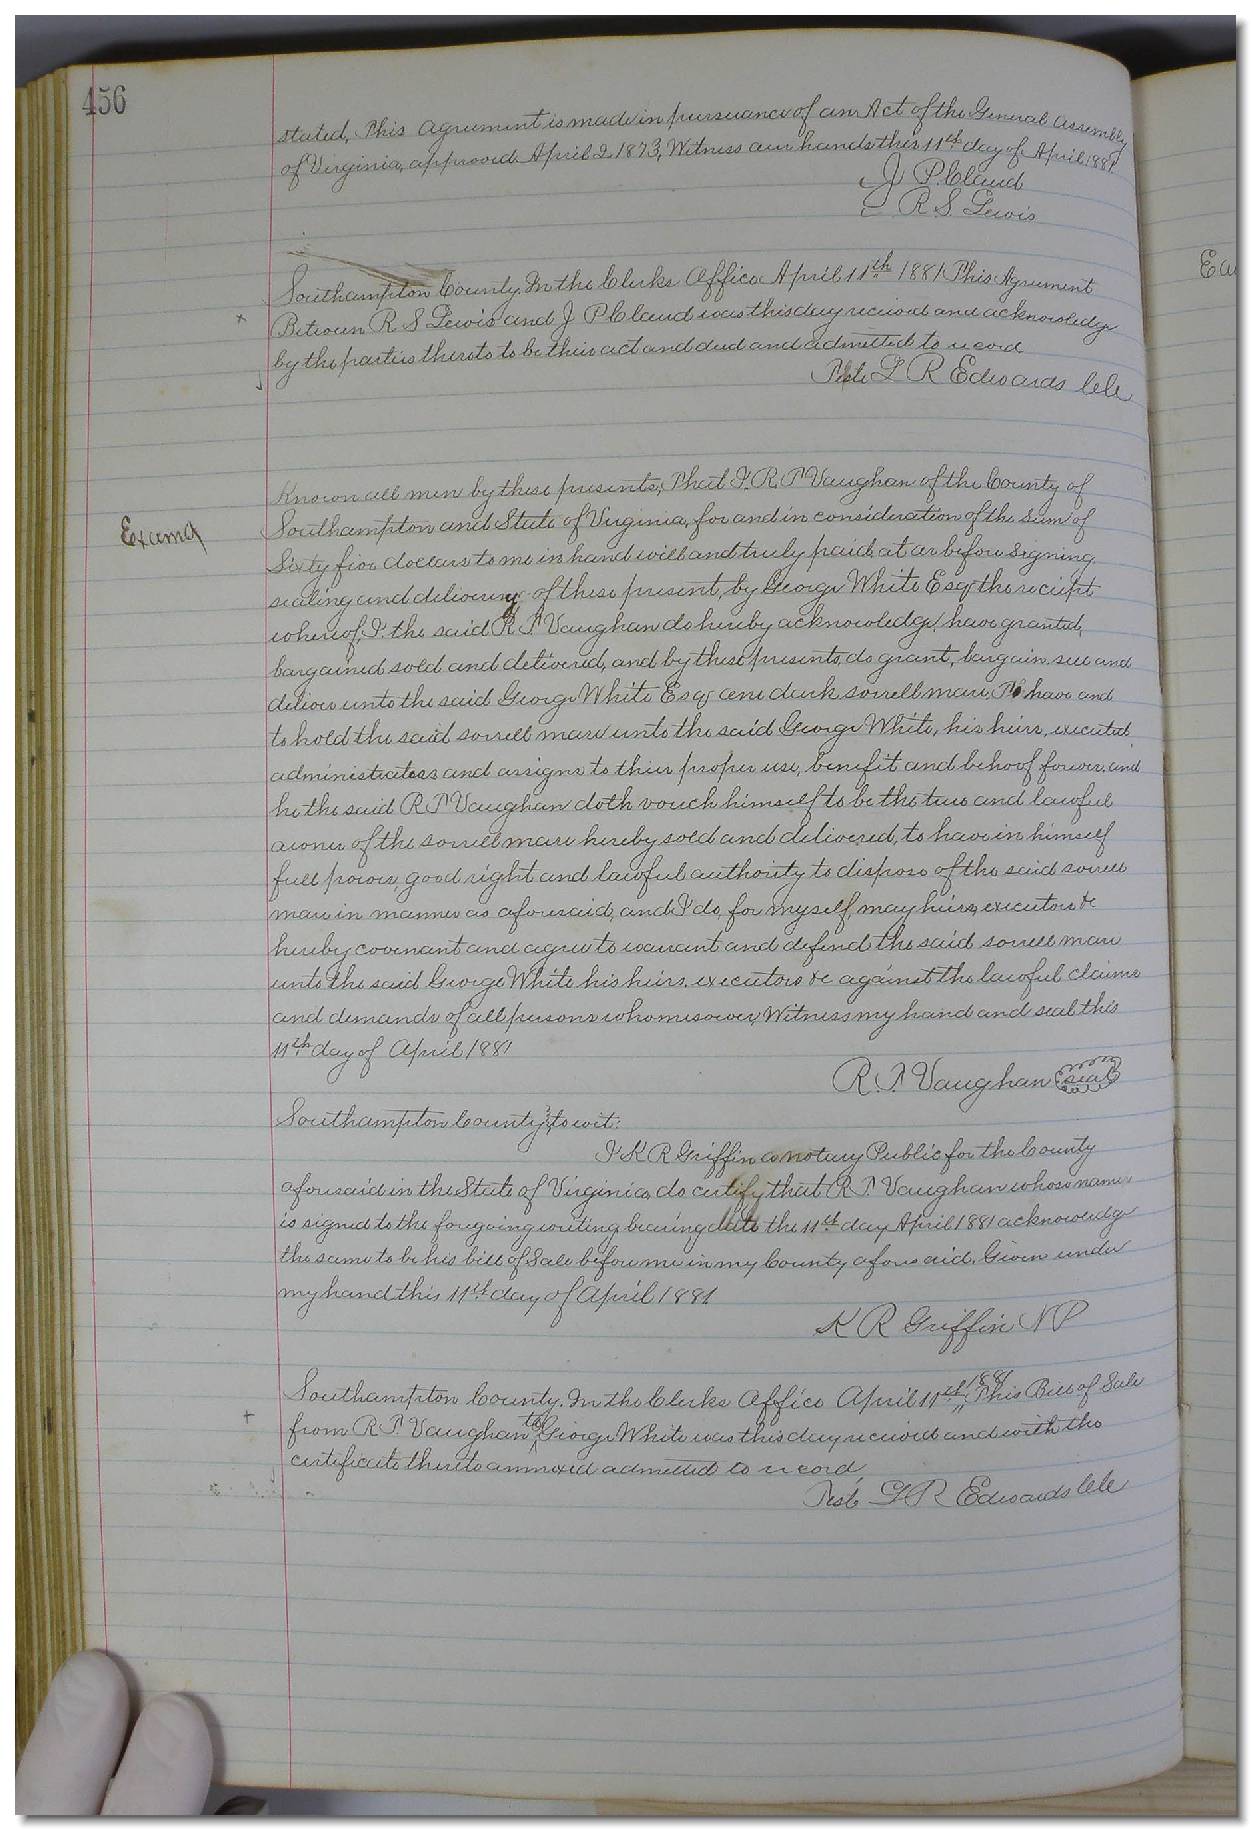 456
stated, This Agreement is made in pursuance of an Act of the General Assembly
of Virginia, approved April 2 1873, Witness our hands this 11th day of April 1881
J P. Claud
R S. Lewis
Southampton County. In the Clerks Office April 11th 1881 This Agrement
Between R S Lewis and J P Claud was this day recived and acknowledge
by the parties thereto to be their act and deed and admitted to record
Teste L R Edwards Clk
Known all men by these presents, That I. R. T. Vaughan of the County of
Examd
Southampton and State of Virginia, for and in consideration of the sum of
Sixty five dollars to me in hand well and truly paid, at or before signing
sealing and delivering of these present, by George White Esq the reciept
whereof I the said R T. Vaughan do hereby acknowledge, have granted,
bargained sold and delivered, and by these presents, do grant, bargain sell and
deliver unto the said George White Esq one dark sorrell mare, To have and
to hold the said sorrell mare unto the said George White, his heirs, executed
administrators and assigns to thier proper use, benefit and behoof forever, and
he the said R T. Vaughan doth vouch himself to be the true and lawful
owner of the sorrell mare hereby sold and delivered, to have in himself
full power, good right and lawful authority to dispose of the said sorrell
mare in manner as aforesaid, and I do, for myself, may heirs, executors &c
hereby covenant and agree to warrant and defend the said sorrell mare
unto the said George White his heirs, executors &c against the lawful claims
and demands of all persons whomesoever, Witness my hand and seal this
11th day of April 1881
R. T. Vaughan seal
Southampton County, to wit:
I K R Griffin a notary Public for the County
aforesaid in the State of Virginia, do certify that R. T. Vaughan whose name
is signed to the foregoing writing bearing date the 11th day April 1881 acknowledge
the same to be his bill of Sale before me in my County aforesaid. Given under
my hand this 11th day of April 1881
K R Griffin NP
Southampton County. In the Clerks Office April 11th 1881, This Bill of Sale
from R T. Vaughan to George White was this day recieved and with the
certificate thereto annexed admitted to record,
Teste L R Edwards Clk